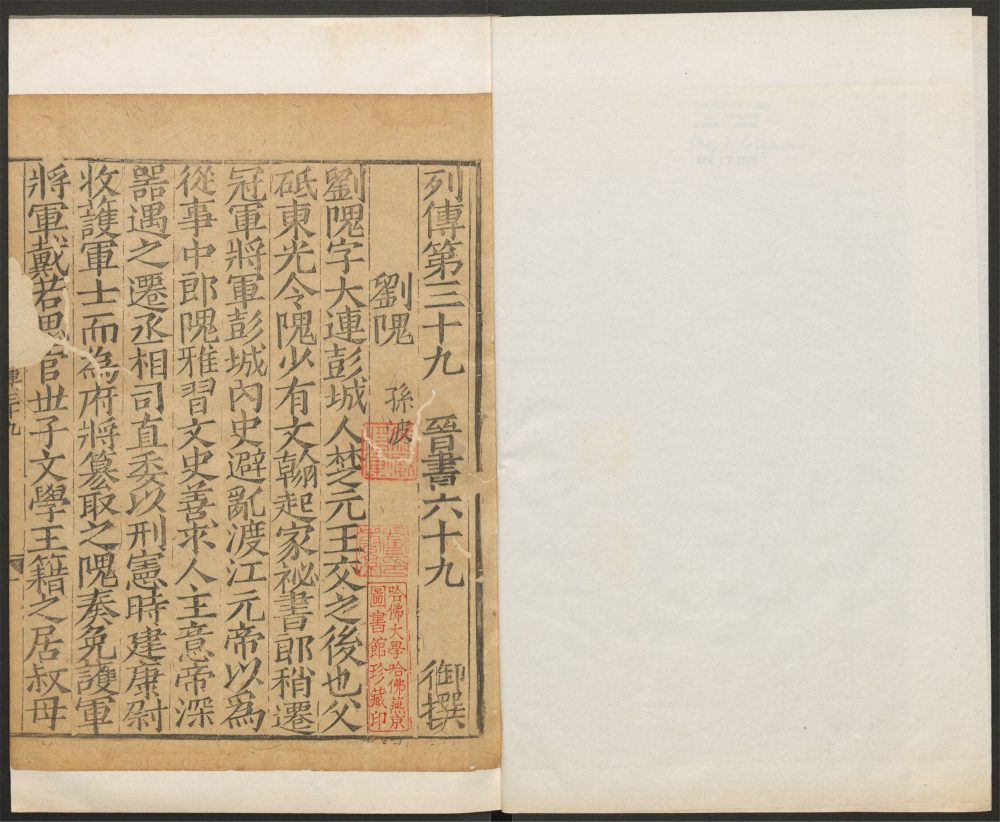 列傳第三十九　晉書六十九　御撰
劉隗　孫波
劉隗字大連彭城人楚元王交之後也父
砥東光令隗少有文翰起家祕書郎稍遷
冠軍將軍彭城內史避亂渡江元帝以爲
從事中郎隗雅習文史善求人主意帝深
器遇之遷丞相司直委以刑憲時建康尉
收護軍士而為府將篡取之隗奏免護軍
將軍戴若思官世子文學王籍之居叔母
傳三十九
哈佛大學哈佛燕京
圖書館珍藏印